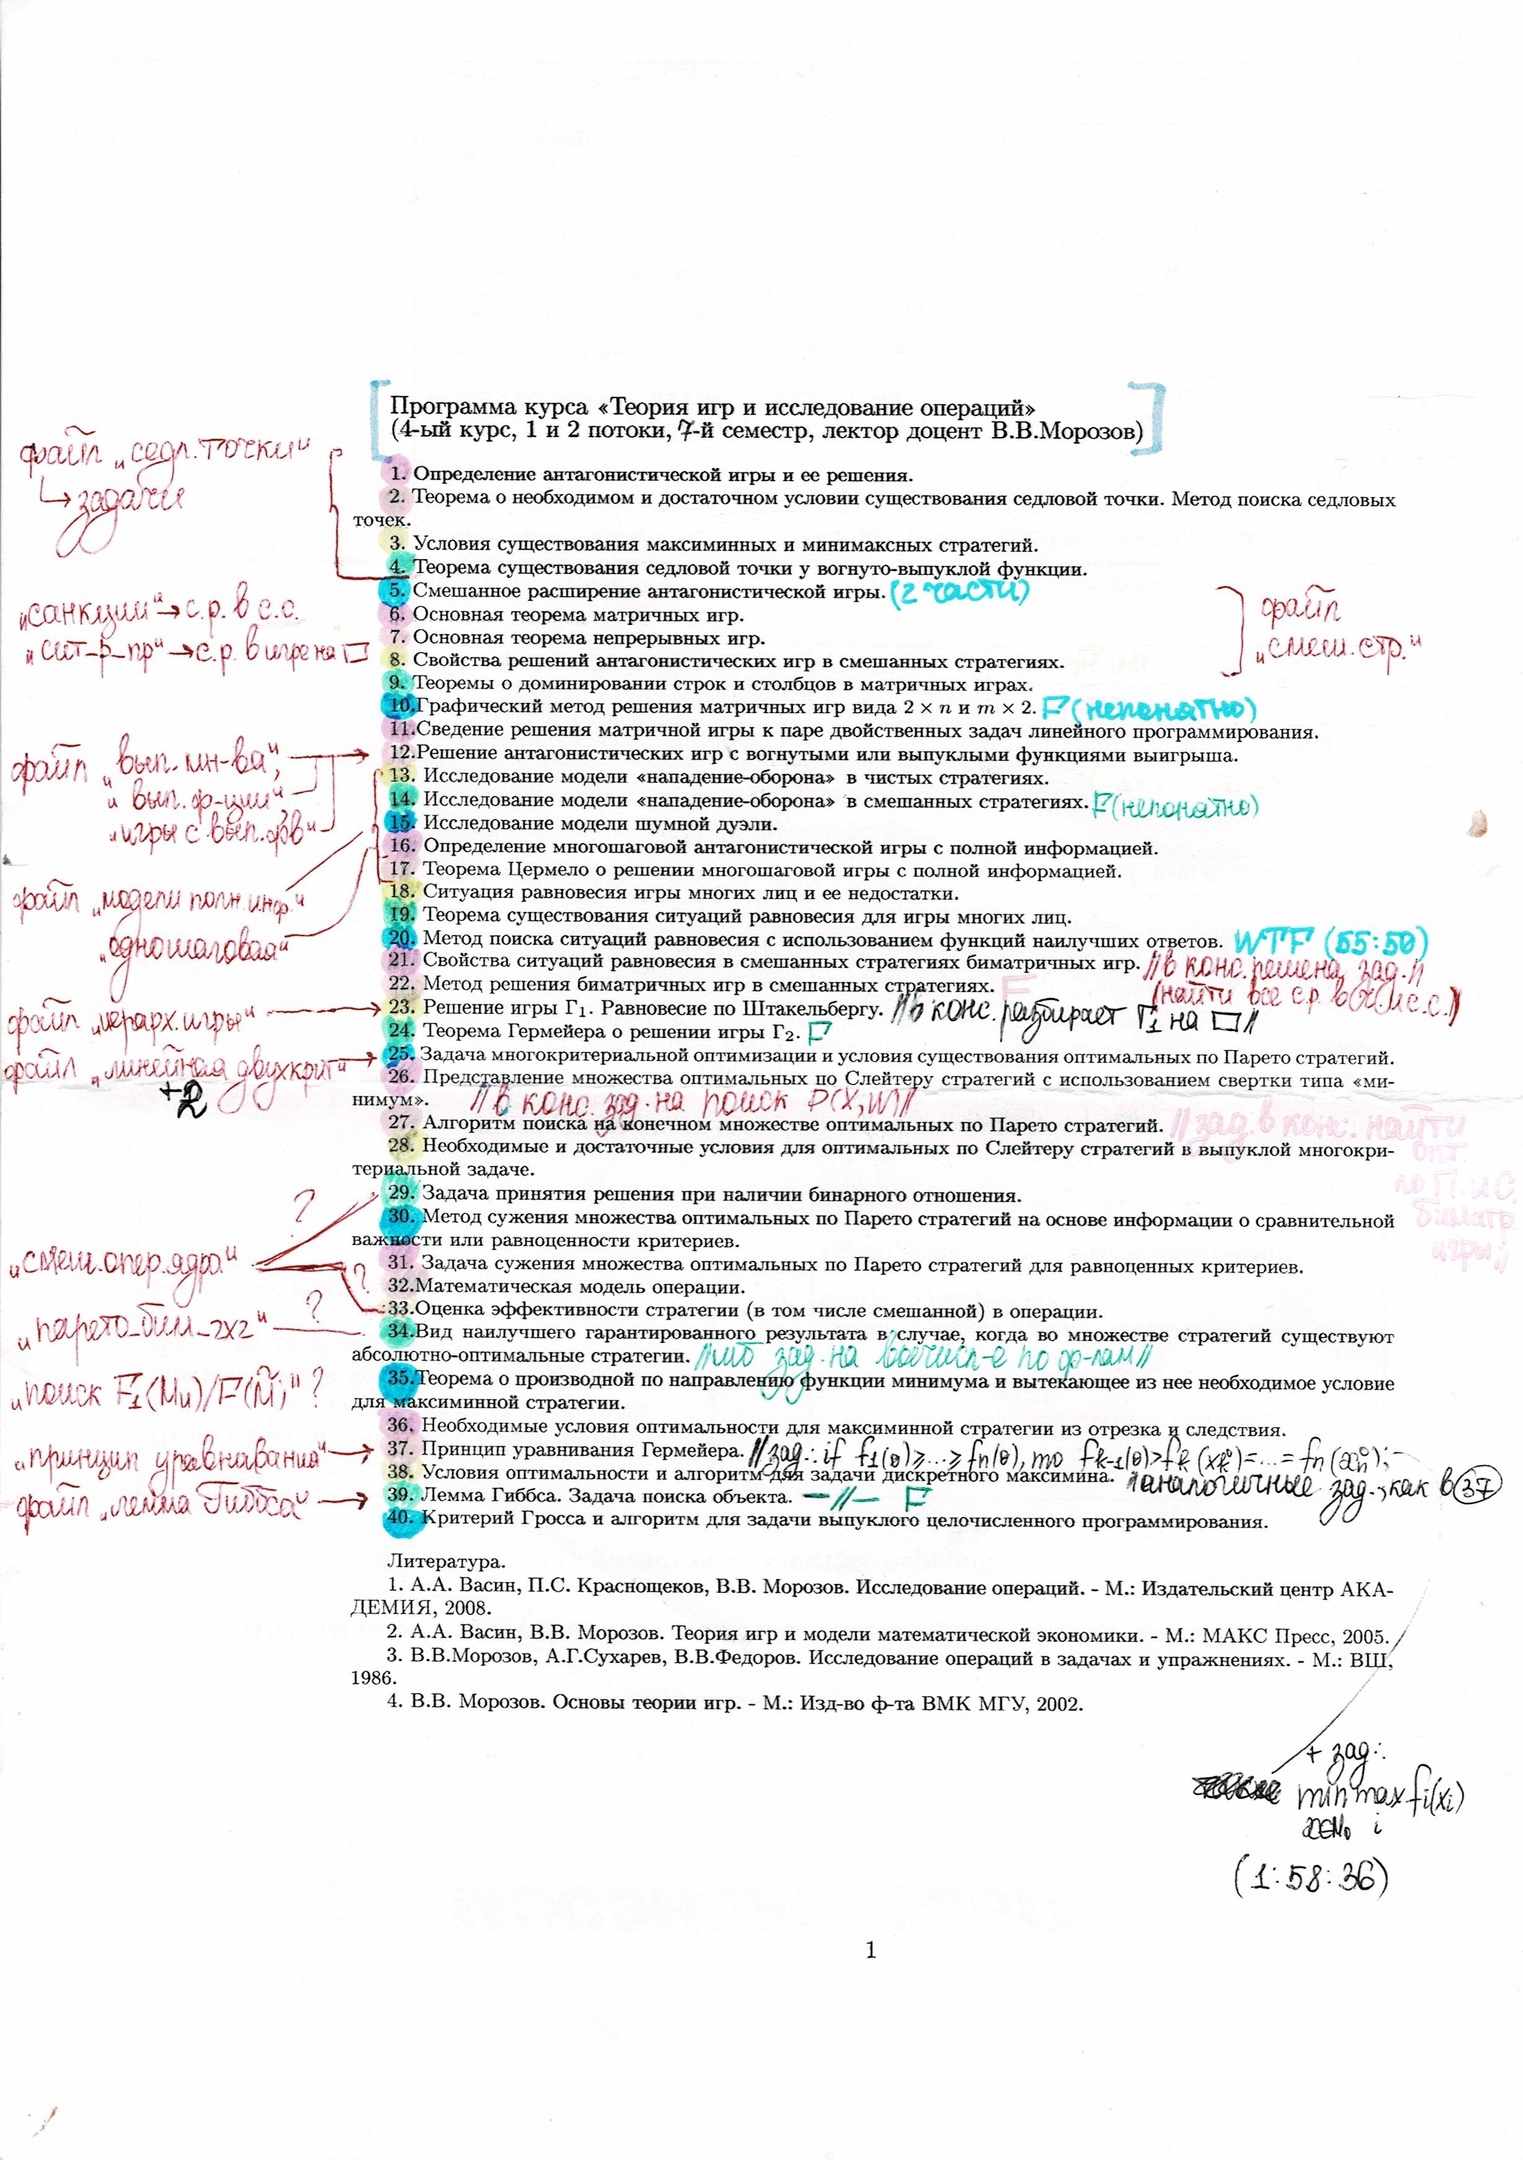 Программа курса «Теория игр и исследование операций»
(4-ый курс, 1 и 2 потоки, 7-й семестр, лектор доцент В.В.Морозов)
файл „седл.точки“
↳ задачи
1. Определение антагонистической игры и ее решения.
2. Теорема о необходимом и достаточном условии существования седловой точки. Метод поиска седловых
точек.
3. Условия существования максиминных и минимаксных стратегий.
4. Теорема существования седловой точки у вогнуто-выпуклой функции.
5. Смешанное расширение антагонистической игры. (2 части)
„санкции“ → с.р. в с.с.
„сит_р_пр“ → с.р. в игре на □
файл
„смеш.стр.“
6. Основная теорема матричных игр.
7. Основная теорема непрерывных игр.
8. Свойства решений антагонистических игр в смешанных стратегиях.
9. Теоремы о доминировании строк и столбцов в матричных играх.
10.Графический метод решения матричных игр вида 2 × n и m × 2. F (непонятно)
11.Сведение решения матричной игры к паре двойственных задач линейного программирования.
файл „вып. мн-ва“,
„вып. ф-ции“,
„игры с вып.фв“
12.Решение антагонистических игр с вогнутыми или выпуклыми функциями выигрыша.
13. Исследование модели «нападение-оборона» в чистых стратегиях.
14. Исследование модели «нападение-оборона» в смешанных стратегиях. F (непонятно)
15. Исследование модели шумной дуэли.
16. Определение многошаговой антагонистической игры с полной информацией.
17. Теорема Цермело о решении многошаговой игры с полной информацией.
файл „модели полн.инф.“
„одношаговая“
18. Ситуация равновесия игры многих лиц и ее недостатки.
19. Теорема существования ситуаций равновесия для игры многих лиц.
20. Метод поиска ситуаций равновесия с использованием функций наилучших ответов. WTF (55:50)
21. Свойства ситуаций равновесия в смешанных стратегиях биматричных игр. //в конс.решена зад.//
22. Метод решения биматричных игр в смешанных стратегиях. F (найти все с.р.
файл „иерарх.игры“ →
23. Решение игры Γ₁. Равновесие по Штакельбергу. //в конс. разбирает Γ₁ на □//
24. Теорема Гермейера о решении игры Γ₂. F
файл „линейная двухкрит“ →
+2
25. Задача многокритериальной оптимизации и условия существования оптимальных по Парето стратегий.
26. Представление множества оптимальных по Слейтеру стратегий с использованием свертки типа «ми-
нимум». //в конс. зад. на поиск P(X,W)//
27. Алгоритм поиска на конечном множестве оптимальных по Парето стратегий. //зад. в конс. найти
опт.
по П. и С.
биматр.
игры//
28. Необходимые и достаточные условия для оптимальных по Слейтеру стратегий в выпуклой многокри-
териальной задаче.
29. Задача принятия решения при наличии бинарного отношения.
30. Метод сужения множества оптимальных по Парето стратегий на основе информации о сравнительной
важности или равноценности критериев.
?
„смеш.опер.ядра“
?
31. Задача сужения множества оптимальных по Парето стратегий для равноценных критериев.
32.Математическая модель операции.
33.Оценка эффективности стратегии (в том числе смешанной) в операции.
„парето_бим_2x2“ ?
34.Вид наилучшего гарантированного результата в случае, когда во множестве стратегий существуют
абсолютно-оптимальные стратегии. зад. на вычисл-е по ф-лам//
„поиск F₁(Mu)/F(M̄)“ ?
35.Теорема о производной по направлению функции минимума и вытекающее из нее необходимое условие
для максиминной стратегии.
36. Необходимые условия оптимальности для максиминной стратегии из отрезка и следствия.
„принцип уравнивания“ →
37. Принцип уравнивания Гермейера. //зад.: if f₁(0)≥...≥fn(0), то fk-1(0)>fk(xk⁰)=...=fn(xn⁰);
38. Условия оптимальности и алгоритм для задачи дискретного максимина. аналогичные зад., как в 37
файл „лемма Гиббса“ →
39. Лемма Гиббса. Задача поиска объекта. —//— F
40. Критерий Гросса и алгоритм для задачи выпуклого целочисленного программирования.
Литература.
1. А.А. Васин, П.С. Краснощеков, В.В. Морозов. Исследование операций. - М.: Издательский центр АКА-
ДЕМИЯ, 2008.
2. А.А. Васин, В.В. Морозов. Теория игр и модели математической экономики. - М.: МАКС Пресс, 2005.
3. В.В.Морозов, А.Г.Сухарев, В.В.Федоров. Исследование операций в задачах и упражнениях. - М.: ВШ,
1986.
4. В.В. Морозов. Основы теории игр. - М.: Изд-во ф-та ВМК МГУ, 2002.
+ зад.:
min max fi(xi)
i
(1:58:36)
1